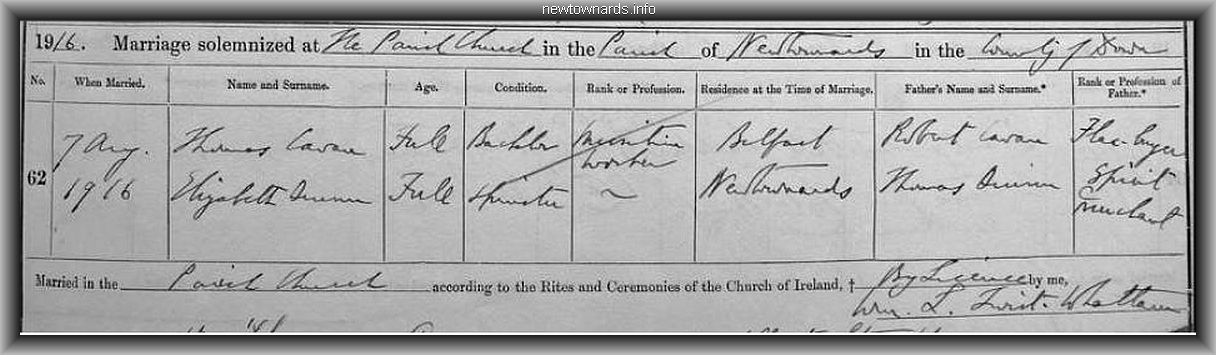 newtownards.info
1916. Marriage solemnized at The Parish Church in the Parish of Newtownards in the County of Down
No. When Married. Name and Surname. Age. Condition. Rank or Profession. Residence at the Time of Marriage. Father's Name and Surname.* Rank or Profession of Father.*
62 7 Aug. 1916 Thomas Cavan Full Bachelor Munition worker Belfast Robert Cavan Flax-buyer
Elizabeth Full Spinster ~ Newtownards Thomas Spirit Merchant
Married in the Parish Church according to the Rites and Ceremonies of the Church of Ireland, † By Licence by me,
Wm. L. Twist-Whatham